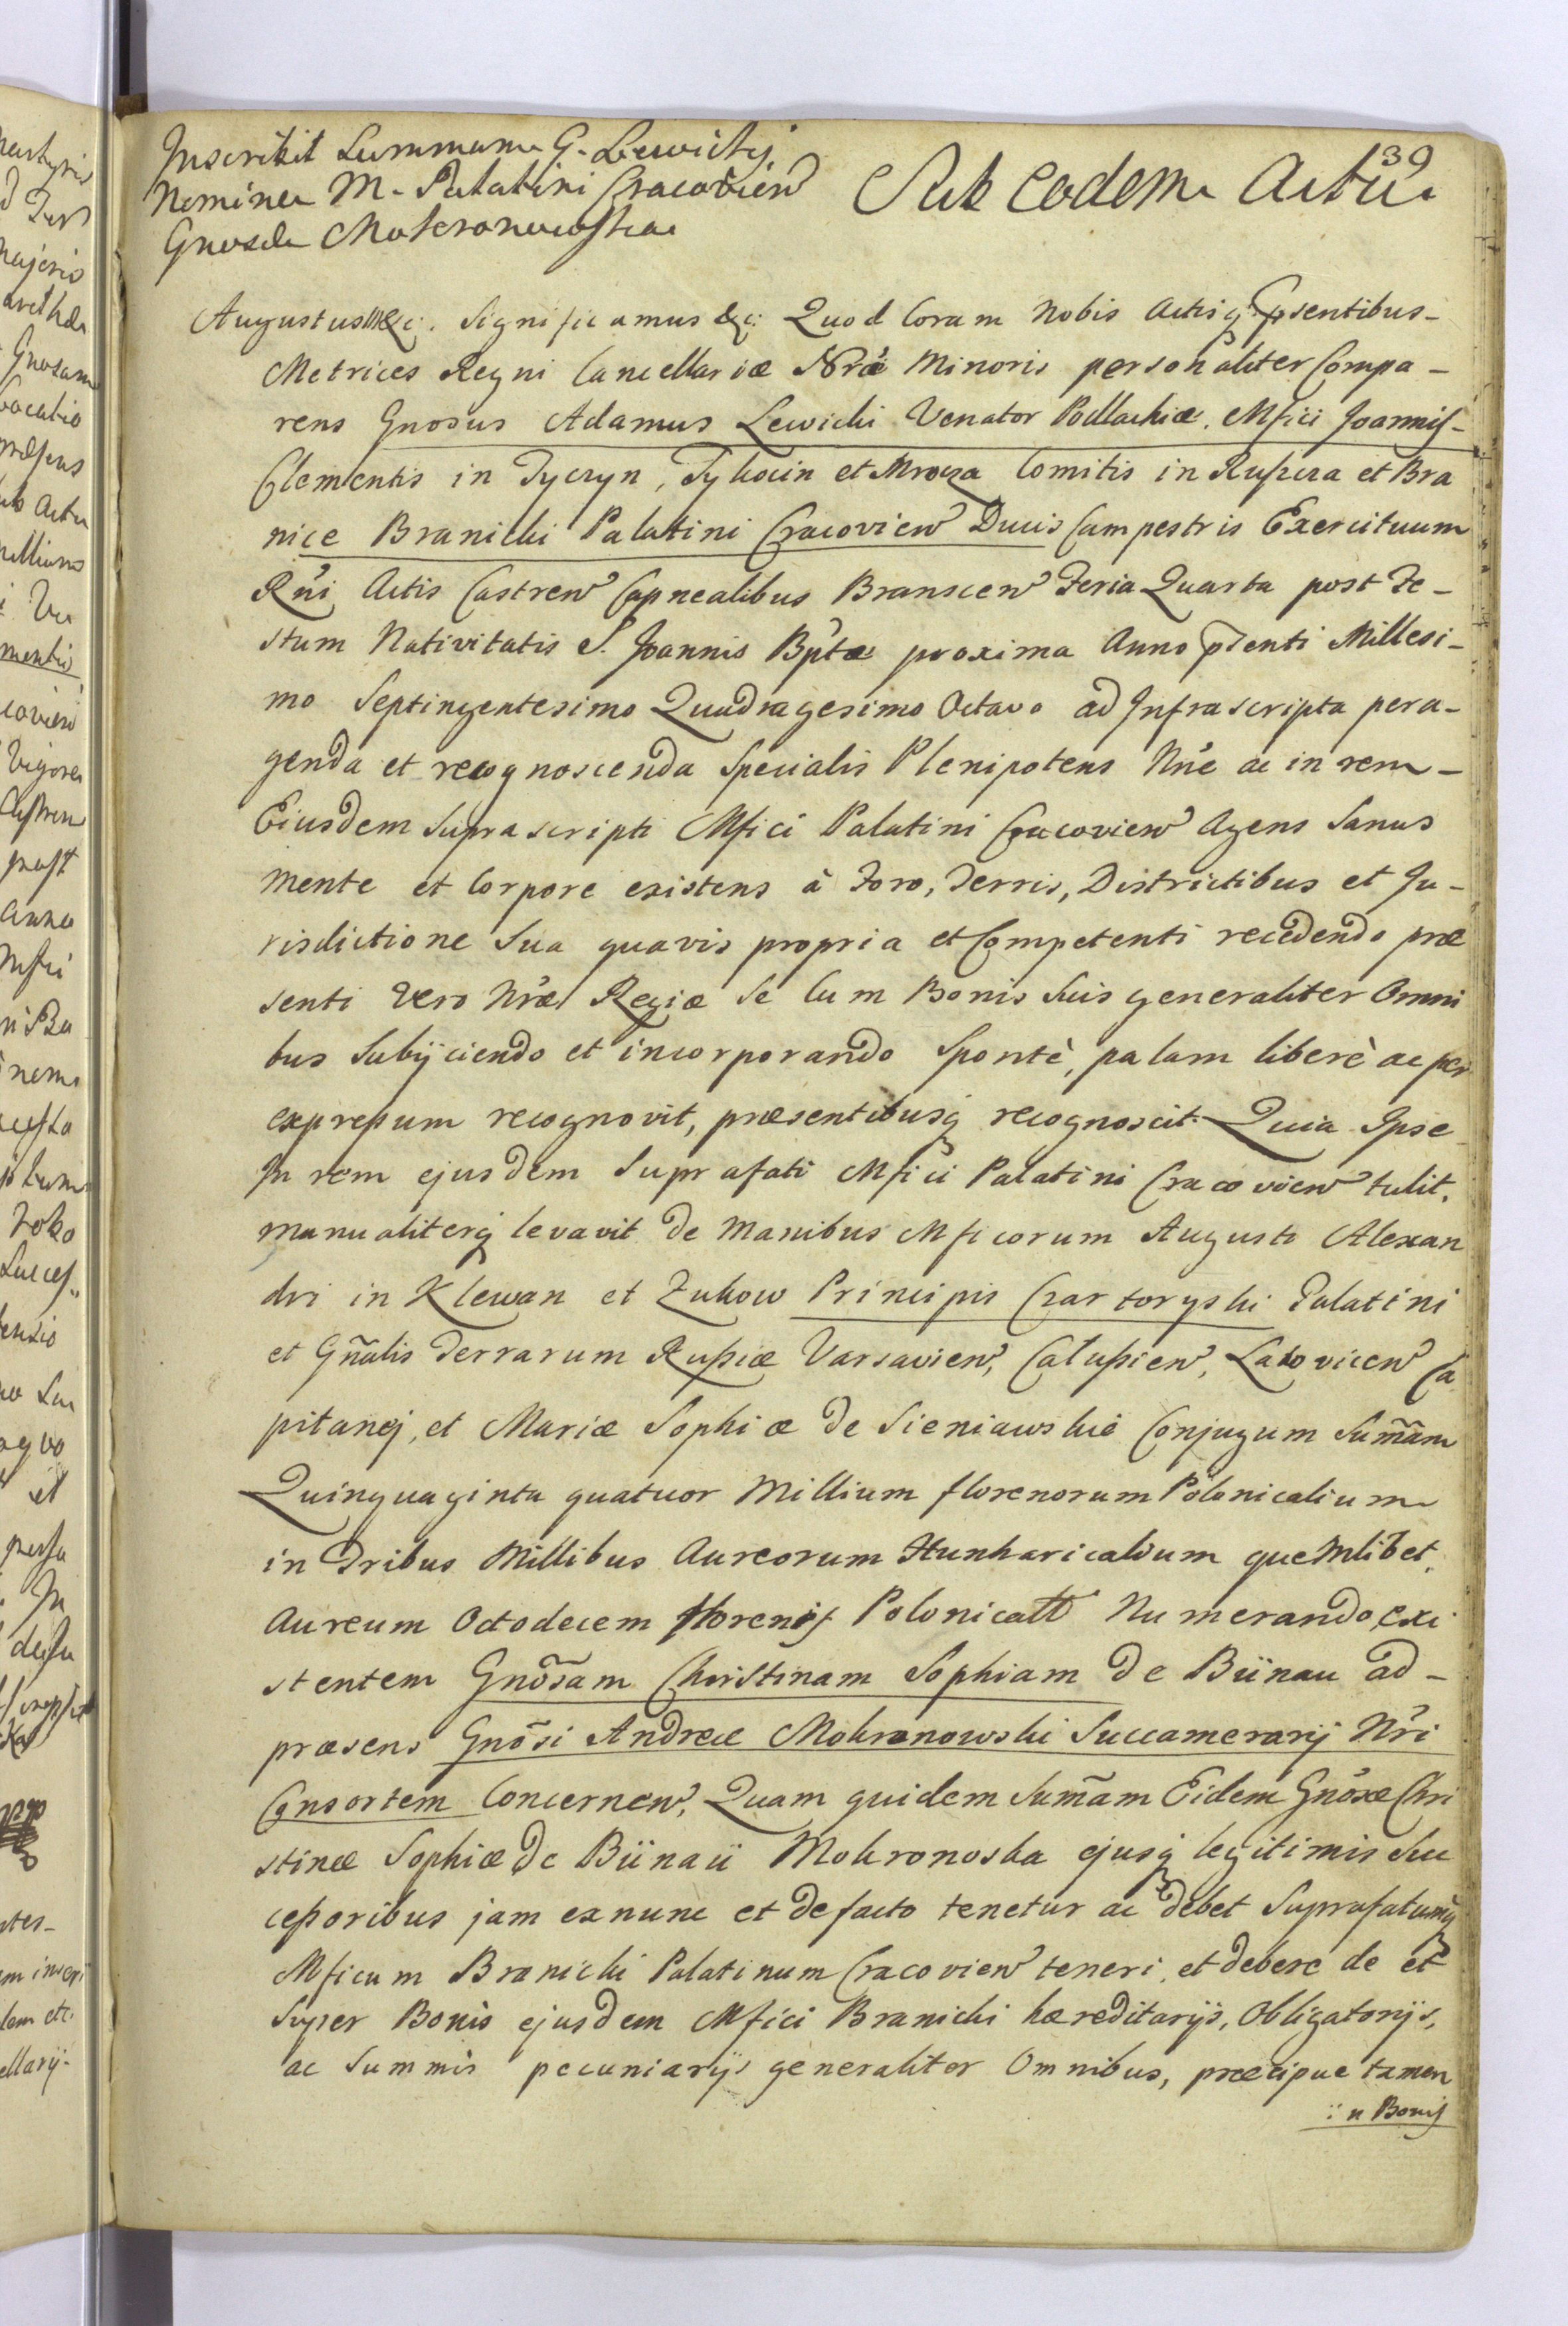 39
Inscribit Summam G. Lewicky
Nomine M. Palatini Cracovien
Gnosae Mokronowskae
Sub eodem Actu
Augustus III &c: Significamus &c: Quod Coram Nobis Actisq; Pßentibus
Metrices Regni Cancellariæ Nræ Minoris personaliter Compa-
rens Gnosus Adamus Lewicki Venator Podlachiæ, Mfici Joannis
Clementis in Tyczyn, Tykocin et Mrocza Comitis in Ruszcza et Bra
nice Branicki Palatini Cracovien Ducis Campestris Exercituum
Rñi Actis Castren Capnealibus Branscen Feria Quarta post Fe-
stum Nativitatis S. Joannis Bptæ proxima Anno pßenti Millesi-
mo Septingentesimo Quadragesimo Octavo ad Infrascripta pera-
genda et recognoscenda Specialis Plenipotens Nñe ac in rem-
Eiusdem Suprascripti Mfici Palatini Cracovien Agens Sanus
Mente et Corpore existens à Foro, Terris, Districtibus et Ju-
risdictione Sua quavis propria et Competenti recedendo præ
senti vero Nræ Regiæ Se Cum Bonis Suis generaliter Omni
bus Subÿciendo et incorporando Spontè, palam liberè ac per
expreßum recognovit, præsentibusq; recognoscit. Quia Ipse
In rem ejusdem Suprafati Mfici Palatini Cracovien tulit,
manualiterq; levavit de Manibus Mficorum Augusti Alexan
dri in Klewan et Zukow Principis Czartoryski Palatini
et Gñalis Terrarum Rußiæ Varsavien, Calußien, Latovicen Ca
pitanej, et Mariæ Sophiæ de Sieniawskie Conjugum Sum̃am
Quinquaginta quatuor Millium florenorum Polonicalium
in Tribus Millibus Aureorum Hunharicalium quemlibet
Aureum Octodecem florenis Polonicall Numerando, exi
stentem Gnõsam Christinam Sophiam de Bünau ad-
præsens Gnõsi Andreæ Mokronowski Succamerarij Nri
Consortem Concernen, Quam quidem Sum̃am Eidem Gnosæ Chri
stinæ Sophiæ de Bünaü Mokronoska ejusq; legitimis Suc
ceßoribus jam exnunc et defacto tenetur ac debet Suprafatumq;
Mficum Branicki Palatinum Cracovien teneri, et debere de et
Super Bonis ejusdem Mfici Branicki hæreditarijs, Obligatorijs,
ac Summis pecuniarijs generaliter Omnibus, præcipue tamen
in Bonis